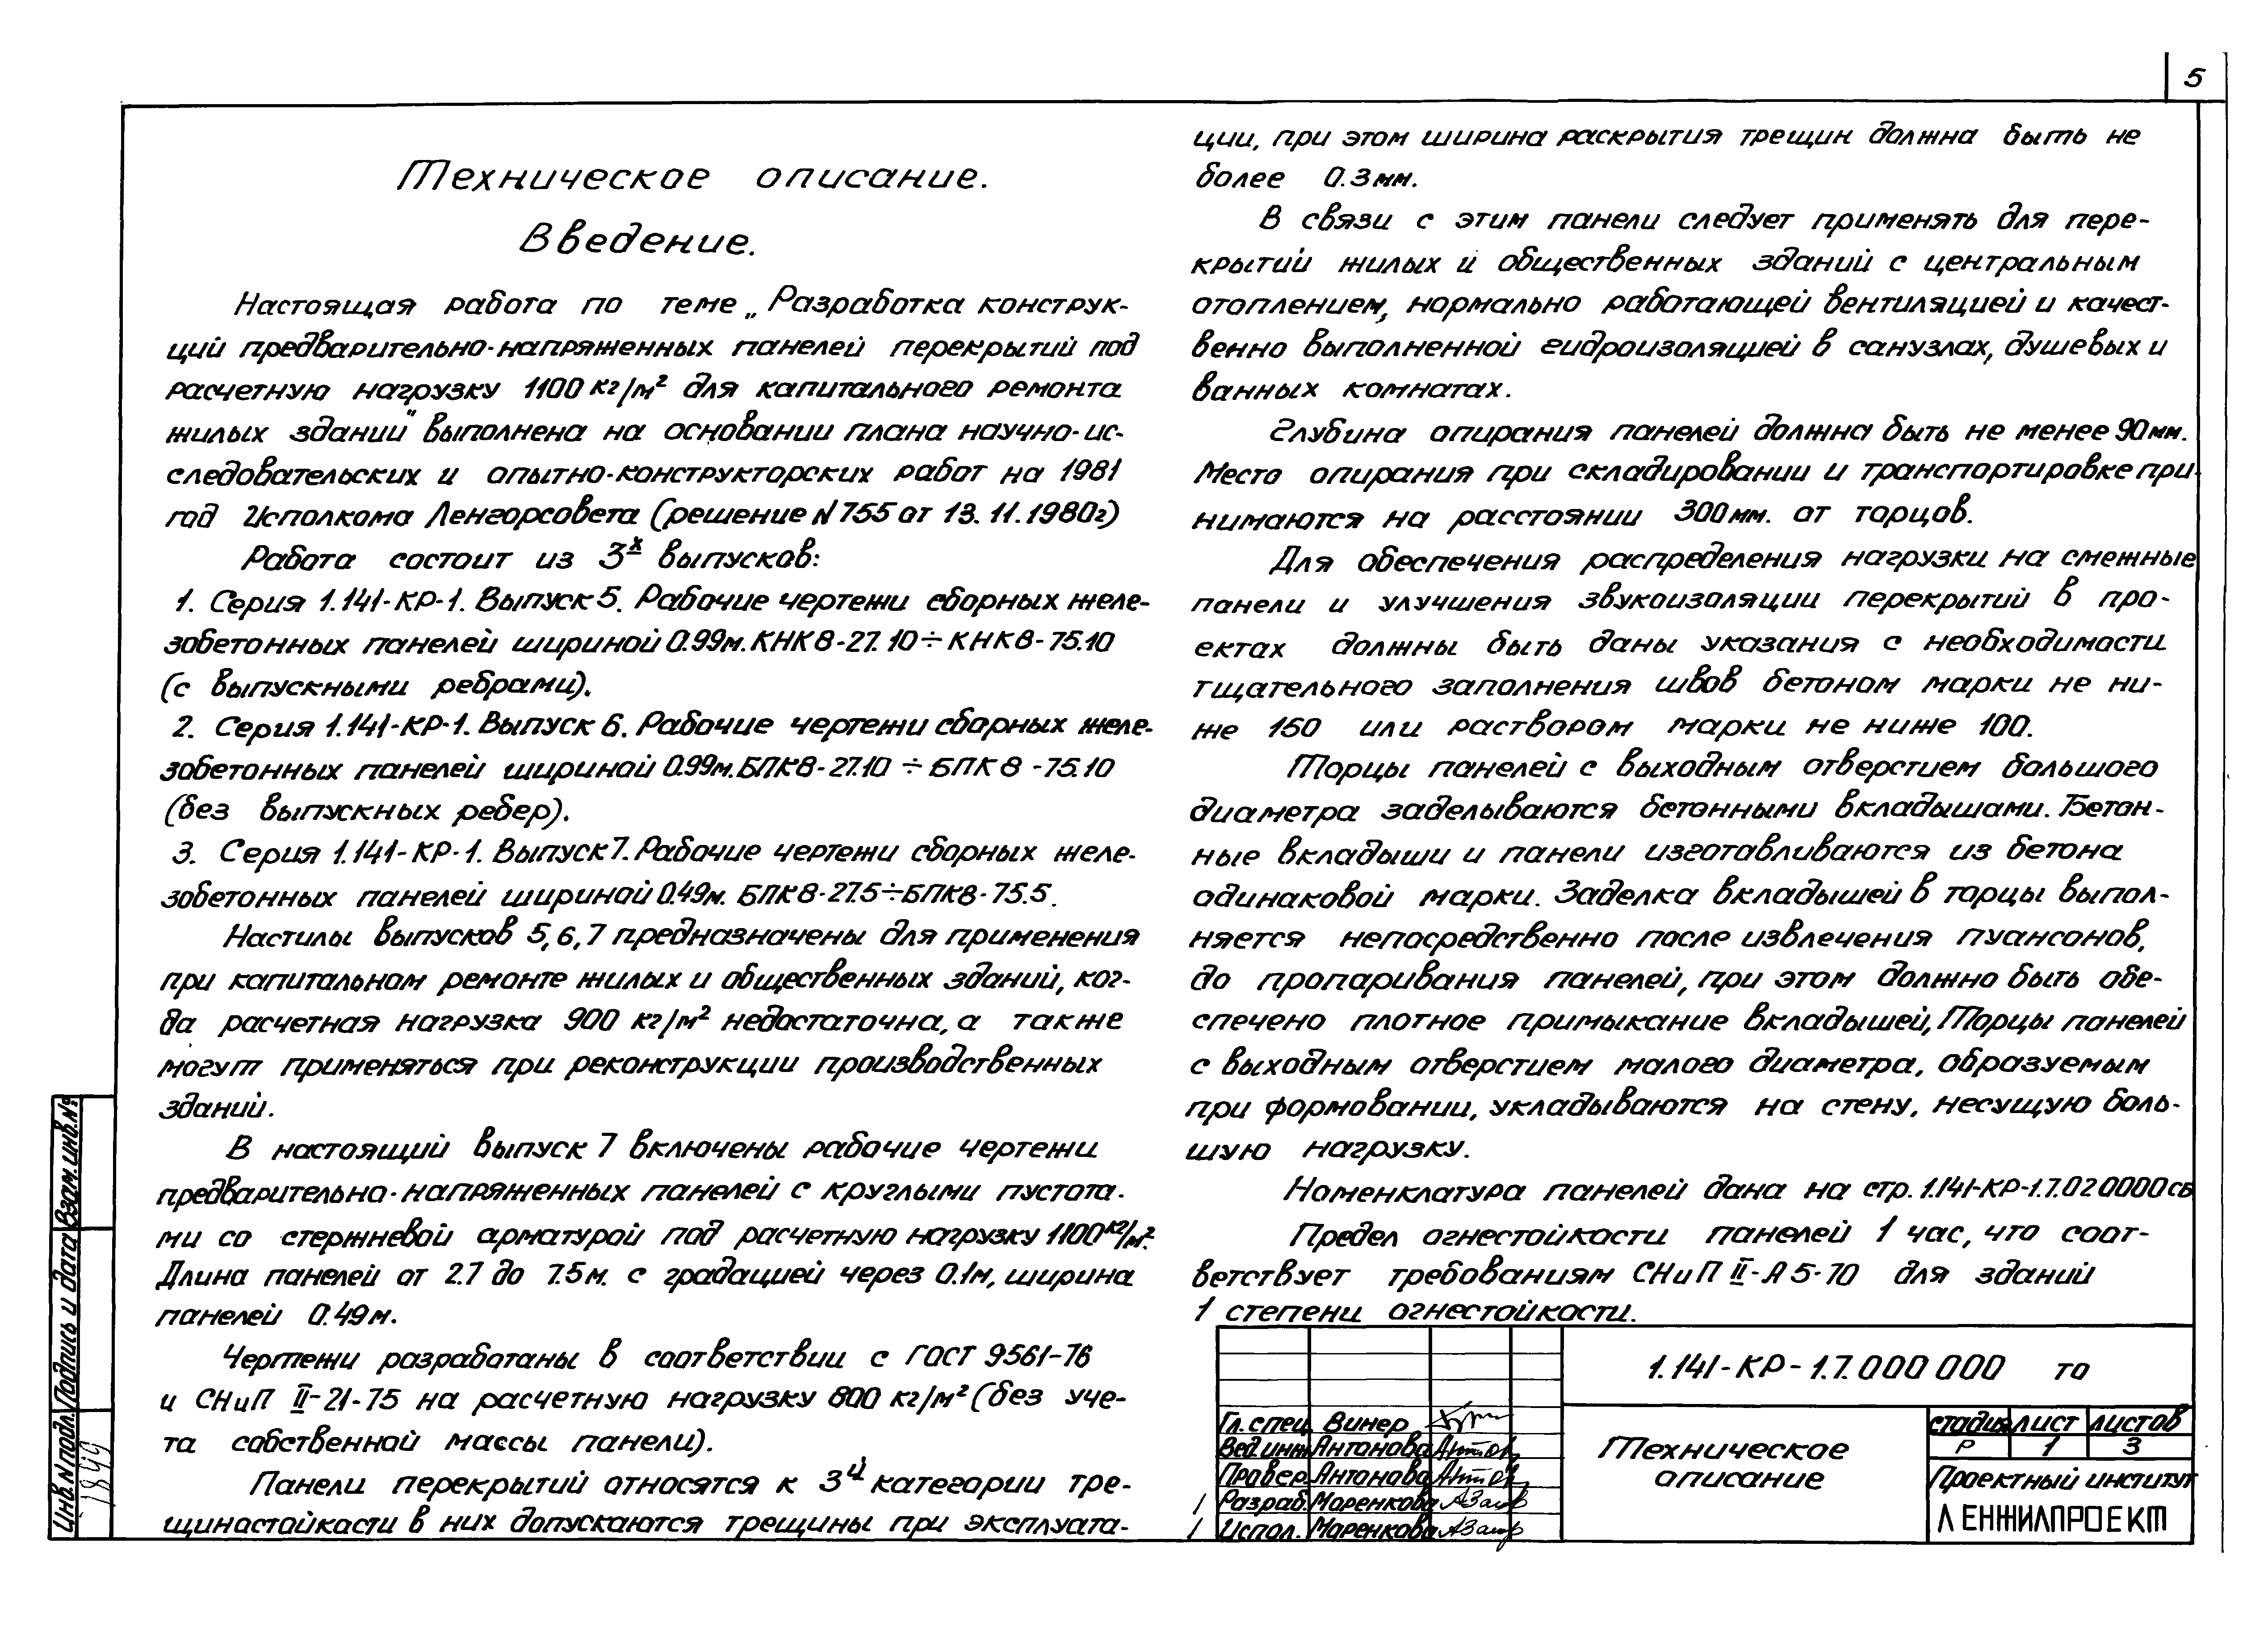 5
Техническое описание.
Введение.
Настоящая работа по теме „Разработка конструк-
ций предварительно-напряженных панелей перекрытий под
расчетную нагрузку 1100 кг/м² для капитального ремонта
жилых зданий" выполнена на основании плана научно-ис-
следовательских и опытно-конструкторских работ на 1981
год Исполкома Ленгорсовета (решение N 755 от 13.11.1980г)
Работа состоит из 3х выпусков:
1. Серия 1.141-КР-1. Выпуск 5. Рабочие чертежи сборных желе-
зобетонных панелей шириной 0.99м. КНК8-27.10÷КНК8-75.10
(с выпускными ребрами).
2. Серия 1.141-КР-1. Выпуск 6. Рабочие чертежи сборных желе-
зобетонных панелей шириной 0.99м. БПК8-27.10 ÷ БПК8-75.10
(без выпускных ребер).
3. Серия 1.141-КР-1. Выпуск 7. Рабочие чертежи сборных желе-
зобетонных панелей шириной 0.49м. БПК8-27.5÷БПК8-75.5.
Настилы выпусков 5,6,7 предназначены для применения
при капитальном ремонте жилых и общественных зданий, ког-
да расчетная нагрузка 900 кг/м² недостаточна, а также
могут применяться при реконструкции производственных
зданий.
В настоящий выпуск 7 включены рабочие чертежи
предварительно-напряженных панелей с круглыми пустота-
ми со стержневой арматурой под расчетную нагрузку 1100 кг/м².
Длина панелей от 2.7 до 7.5м. с градацией через 0.1м, ширина
панелей 0.49м.
Чертежи разработаны в соответствии с ГОСТ 9561-76
и СНиП II-21-75 на расчетную нагрузку 800 кг/м² (без уче-
та собственной массы панели).
Панели перекрытий относятся к 3й категории тре-
щиностойкости в них допускаются трещины при эксплуата-
ции, при этом ширина раскрытия трещин должна быть не
более 0.3 мм.
В связи с этим панели следует применять для пере-
крытий жилых и общественных зданий с центральным
отоплением, нормально работающей вентиляцией и качест-
венно выполненной гидроизоляцией в санузлах, душевых и
ванных комнатах.
Глубина опирания панелей должна быть не менее 90мм.
Место опирания при складировании и транспортировке при-
нимаются на расстоянии 300мм. от торцов.
Для обеспечения распределения нагрузки на смежные
панели и улучшения звукоизоляции перекрытий в про-
ектах должны быть даны указания с необходимости
тщательного заполнения швов бетоном марки не ни-
же 150 или раствором марки не ниже 100.
Торцы панелей с выходным отверстием большого
диаметра заделываются бетонными вкладышами. Бетон-
ные вкладыши и панели изготавливаются из бетона
одинаковой марки. Заделка вкладышей в торцы выпол-
няется непосредственно после извлечения пуансонов,
до пропаривания панелей, при этом должно быть обе-
спечено плотное примыкание вкладышей, Торцы панелей
с выходным отверстием малого диаметра, образуемым
при формовании, укладываются на стену, несущую боль-
шую нагрузку.
Номенклатура панелей дана на стр. 1.141-КР-1.7.02 0000сб
Предел огнестойкости панелей 1 час, что соот-
ветствует требованиям СНиП II-А 5-70 для зданий
1 степени огнестойкости.
1.141-КР-1.7.000 000 ТО
Гл. спец. Винер
Вед. инж. Антонова
Провер. Антонова
Разраб. Маренкова
Испол. Маренкова
Техническое
описание
стадия лист листов
Р 1 3
Проектный институт
ЛЕНЖИЛПРОЕКТ
Взам. инв. №
Подпись и дата
Инв. N подл.
1849